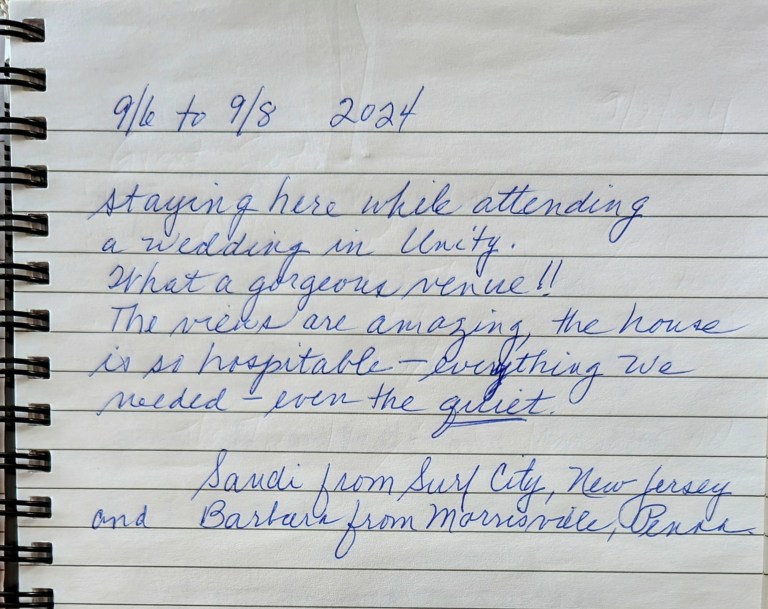 9/6 to 9/8 2024
staying here while attending
a wedding in Unity.
What a gorgeous venue!!
The views are amazing, the house
is so hospitable - everything we
needed - even the quiet.
Sandi from Surf City, New Jersey
and Barbara from Morrisville, Penna.